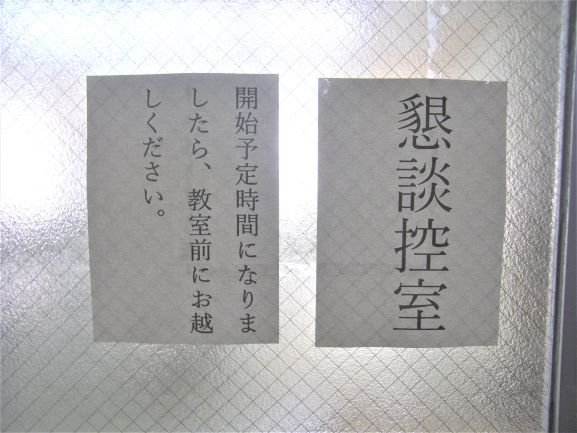 懇談控室
開始予定時間になりま
したら、教室前にお越
しください。